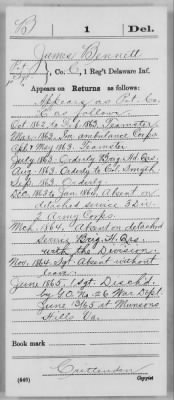 B | 1 | Del.
James Bennett
Pvt Sgt, Co. C, 1 Reg't Delaware Inf.
Appears on Returns as follows:
Appears as Pvt. Co.
C as follows
Oct 1862 to Feb 1863. Teamster
Mar. 1863. In ambulance Corps.
Apl & May 1863. Teamster.
July 1863. Orderly Brig. Hd. Qrs.
Aug. 1863. Orderly to Col. Smyth.
Sep. 1863. Orderly.
Dec. 1863 & Jan. 1864. Absent on
detached service 3 Div.
2 Army Corps.
Mch. 1864. Absent on detached
Service Brig. H. Qrs.
with the Division.
Nov. 1864. Sgt. Absent without
leave.
June 1865. 1 Sgt. Disch'd
by G.O. No. 26 War Dept.
June 3/65 at Munsons
Hill, Va.
Book mark
(646)
Crittenden
Copyist